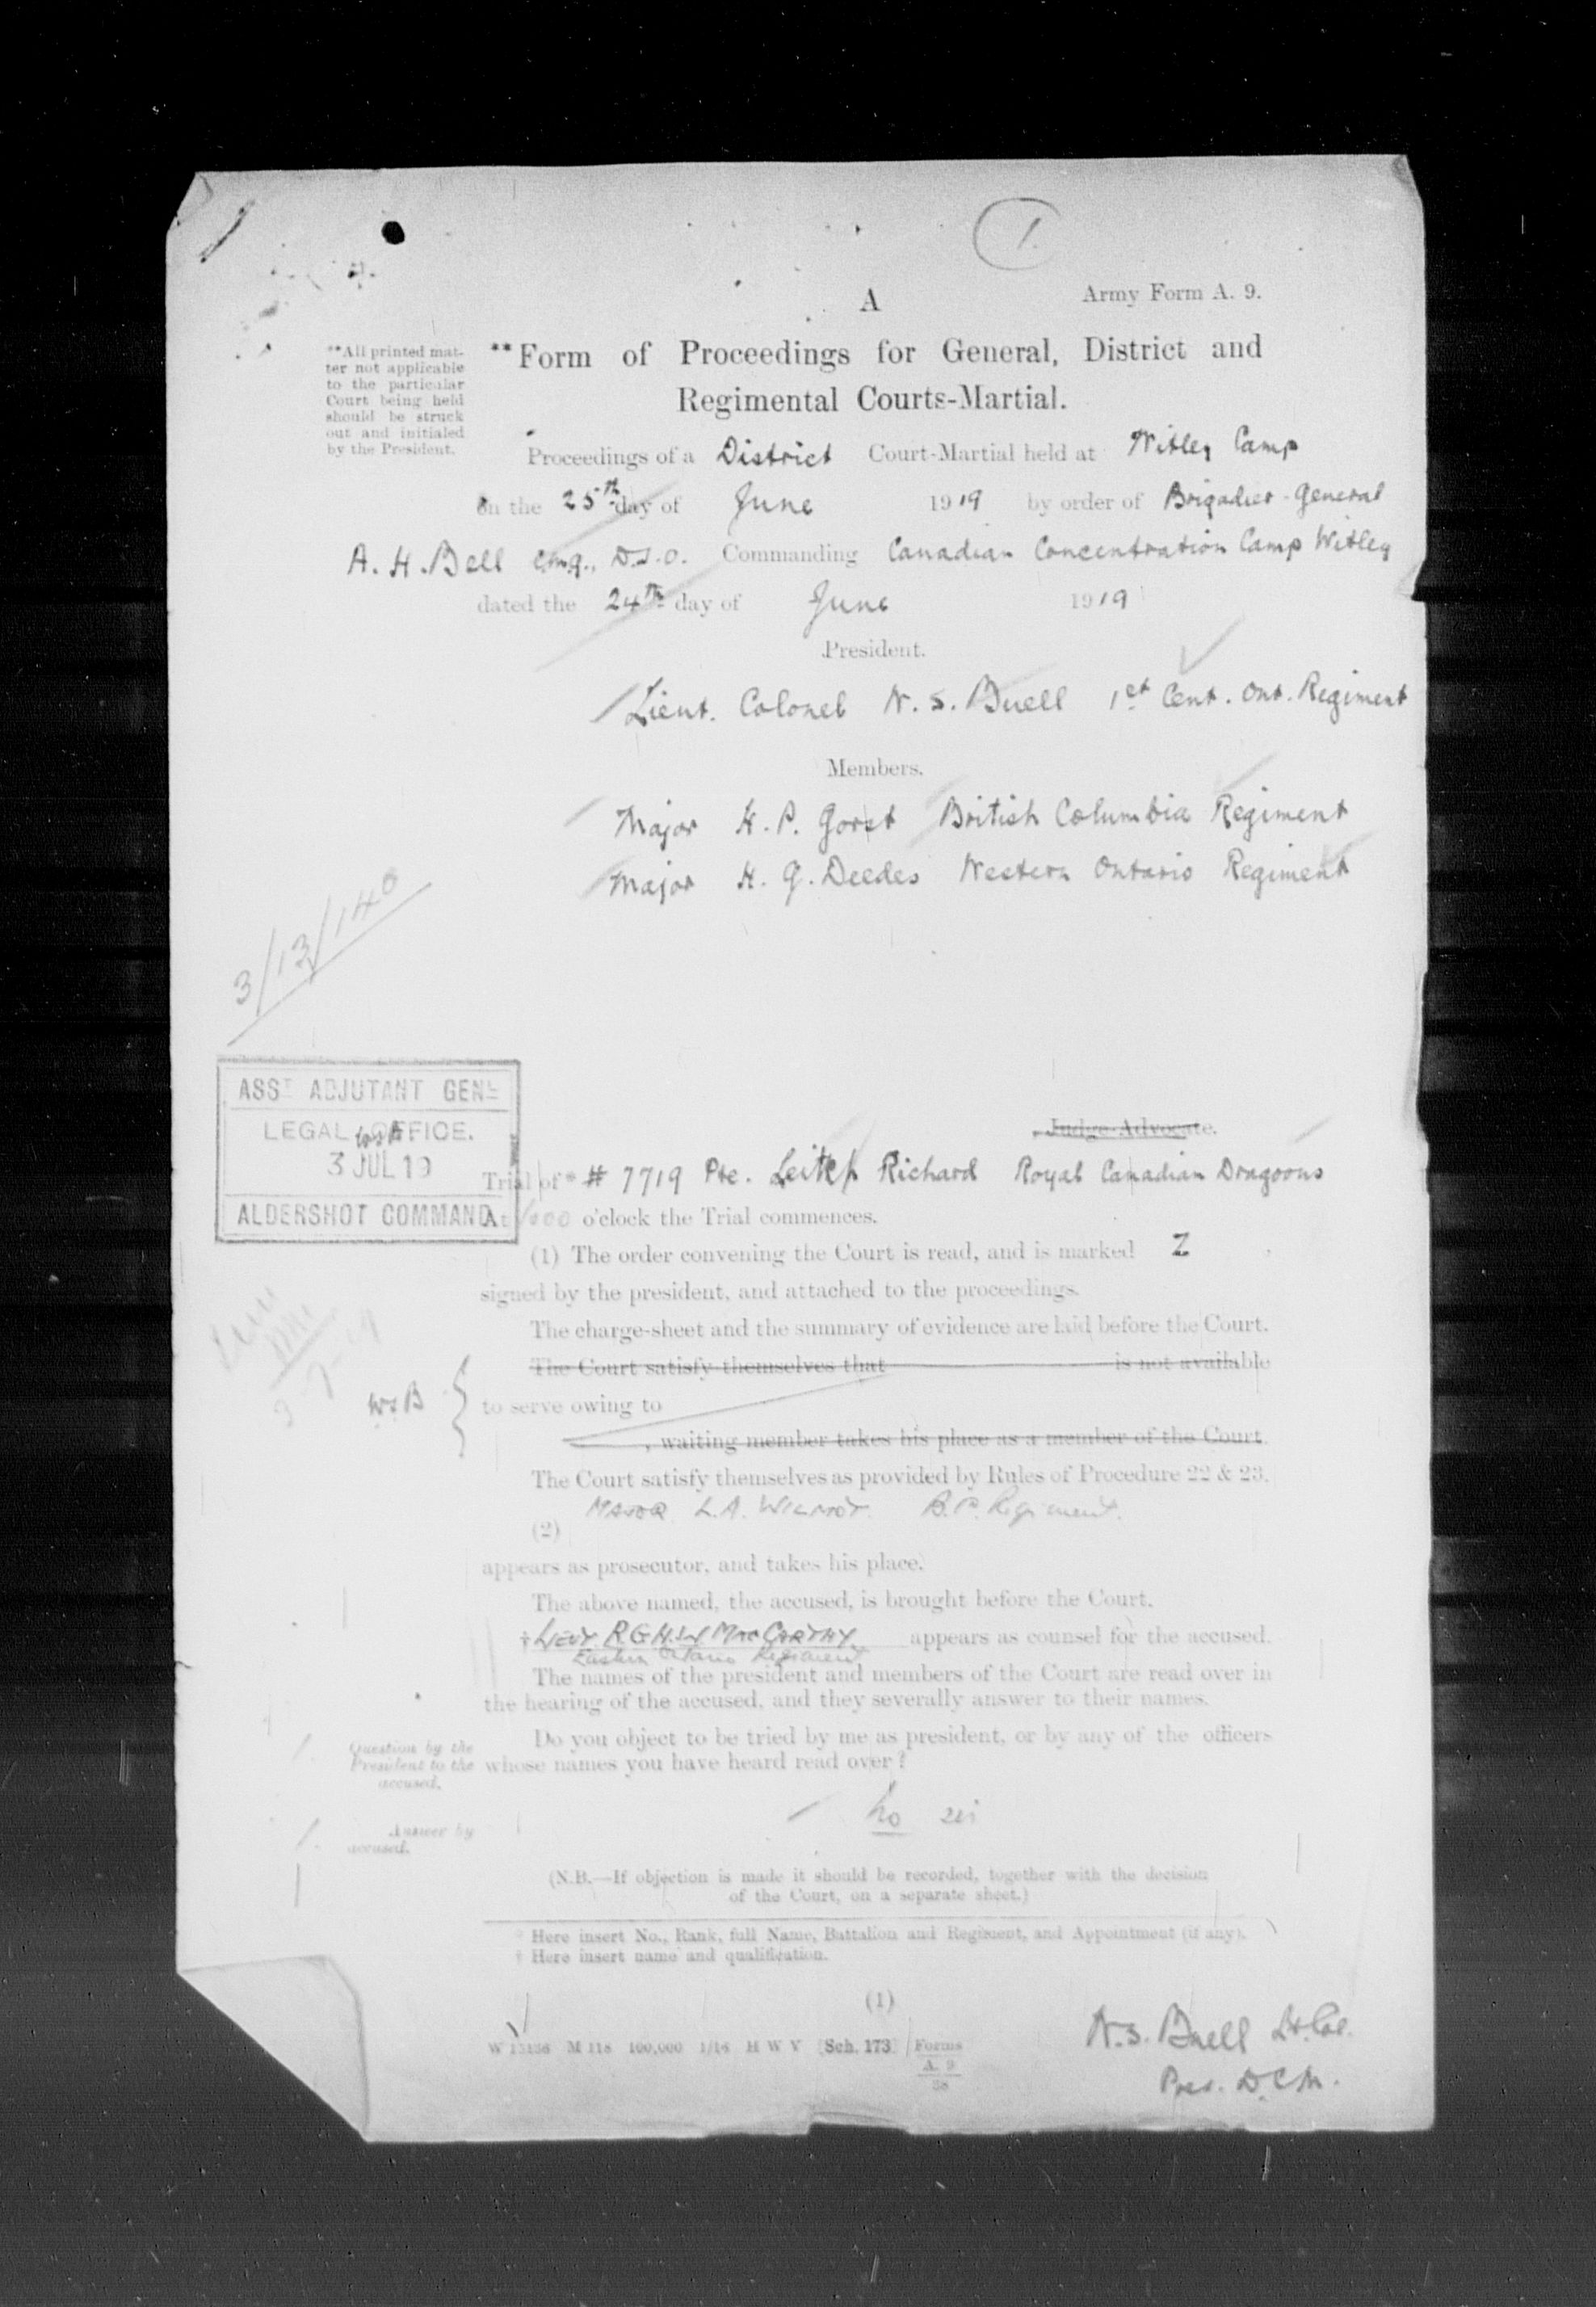 1.
A
Army Form A. 9.
**All printed mat-
ter not applicable
to the particular
Court being held
should be struck
out and initialed
by the President.
**Form of Proceedings for General, District and
Regimental Courts-Martial.
Proceedings of a District Court-Martial held at Witley Camp
on the 25th day of June 1919 by order of Brigadier-General
A. H. Bell C.M.G., D.S.O. Commanding Canadian Concentration Camp Witley
dated the 24th day of June 1919
President.
Lieut. Colonel W. S. Buell 1st Cent. Ont. Regiment
Members.
Major H. P. Gorst British Columbia Regiment
Major H. G. Deedes Western Ontario Regiment
3/13/140
ASST ADJUTANT GENL
LEGAL OFFICE.
3 JUL 19
ALDERSHOT COMMAND
Judge-Advocate.
Trial of* # 7719 Pte. Leitch Richard Royal Canadian Dragoons
At 1000 o'clock the Trial commences.
(1) The order convening the Court is read, and is marked Z ,
signed by the president, and attached to the proceedings.
The charge-sheet and the summary of evidence are laid before the Court.
The Court satisfy themselves that is not available
W.S.B
to serve owing to
, waiting member takes his place as a member of the Court.
The Court satisfy themselves as provided by Rules of Procedure 22 & 23.
(2) MAJOR L.A. WILMOT. B.C. Regiment.
appears as prosecutor, and takes his place.
The above named, the accused, is brought before the Court.
† LIEUT R.G.H.W MACCARTHY appears as counsel for the accused.
Eastern Ontario Regiment
The names of the president and members of the Court are read over in
the hearing of the accused, and they severally answer to their names.
Question by the
President to the
accused.
Do you object to be tried by me as president, or by any of the officers
whose names you have heard read over?
Answer by
accused.
No sir
(N.B.—If objection is made it should be recorded, together with the decision
of the Court, on a separate sheet.)
* Here insert No., Rank, full Name, Battalion and Regiment, and Appointment (if any).
† Here insert name and qualification.
(1)
M 118 100,000 1/16 H W V [Sch. 173] Forms
A. 9
38
W.S. Buell Lt. Col.
Pres. D.C.M.